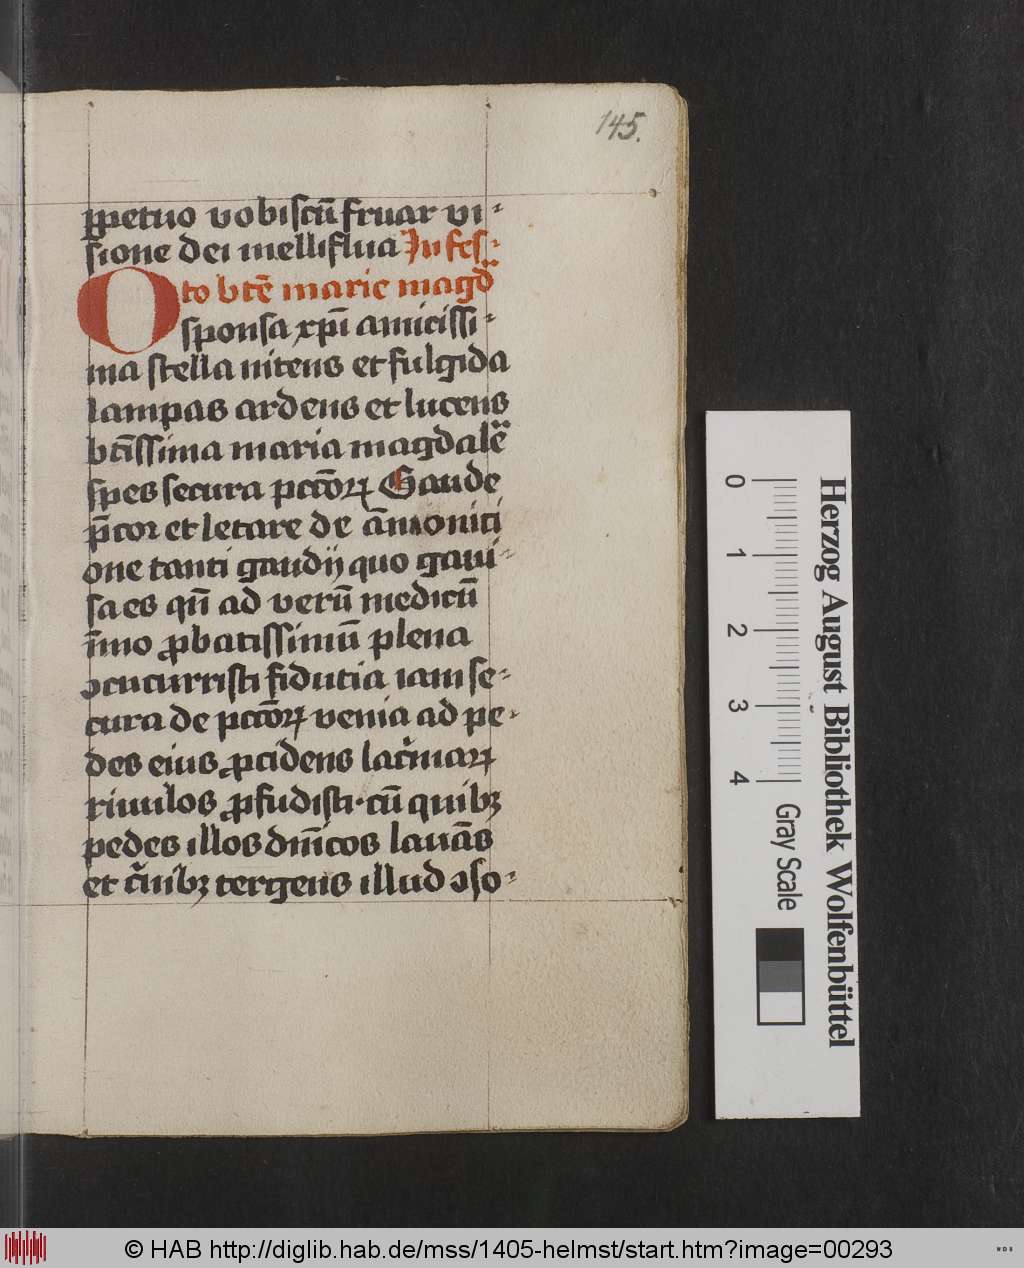 145.
ꝑpetuo vobiscū fruar vi-
sione dei melliflua In fes-
to btē marie magd̄
O sponsa xp̄i amicissi-
ma stella nitens et fulgida
lampas ardens et lucens
btīssima maria magdalē
spes secura pctōꝝ Gaude
pc̄tor et letare de āmoniti
one tanti gaudij quo gaui-
sa es qn̄ ad verū medicū
īmo ꝓbatissimū plena
ꝯcucurristi fidutia iam se-
cura de pctōꝝ venia ad pe-
des eius ꝓcidens lac̄rmaꝝ
riuulos ꝓfudisti · cū quibꝫ
pedes illos dnīcos lauās
et c̄rinibꝫ tergens illud ꝯso-
0 1 2 3 4
Gray Scale
Herzog August Bibliothek Wolfenbüttel
© HAB http://diglib.hab.de/mss/1405-helmst/start.htm?image=00293